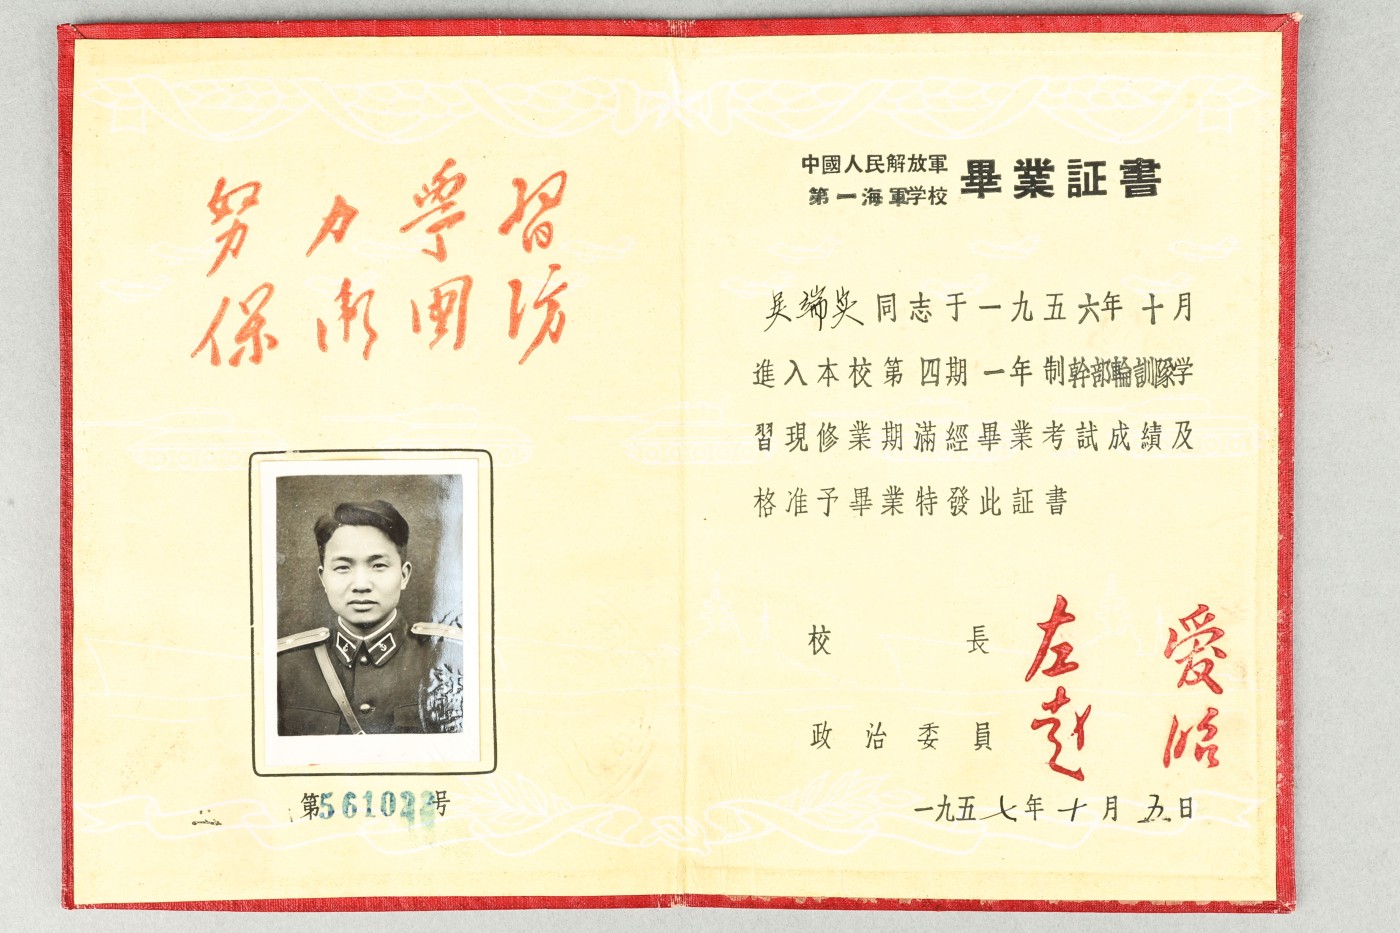 努力學習
保衛國防
第561022号
中國人民解放軍
第一海軍学校
畢業証書
吴端英同志于一九五六年十月
進入本校第四期一年制幹部輪訓隊学
習現修業期滿經畢業考試成績及
格准予畢業特發此証書
校長 左愛
政治委員 赵
一九五七年十月五日